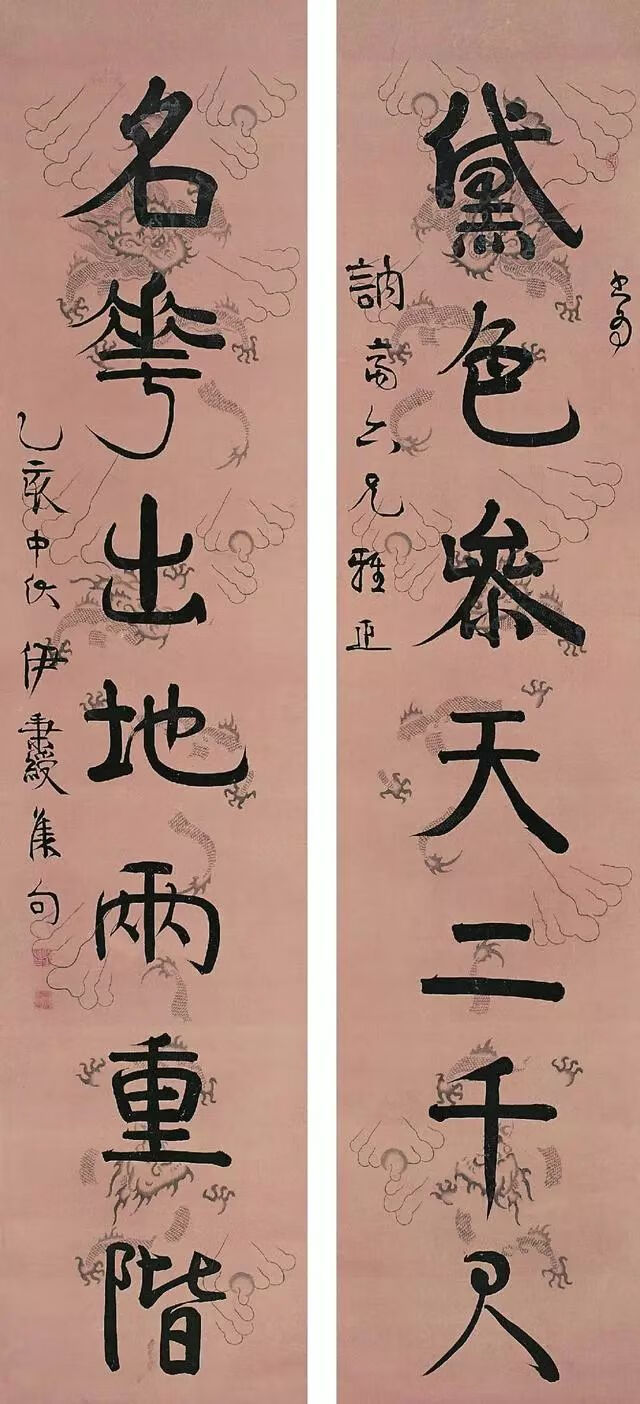 黛色參天二千尺
書為
訥齋六兄雅正
名華出地兩重階
乙亥中伏伊秉綬集句